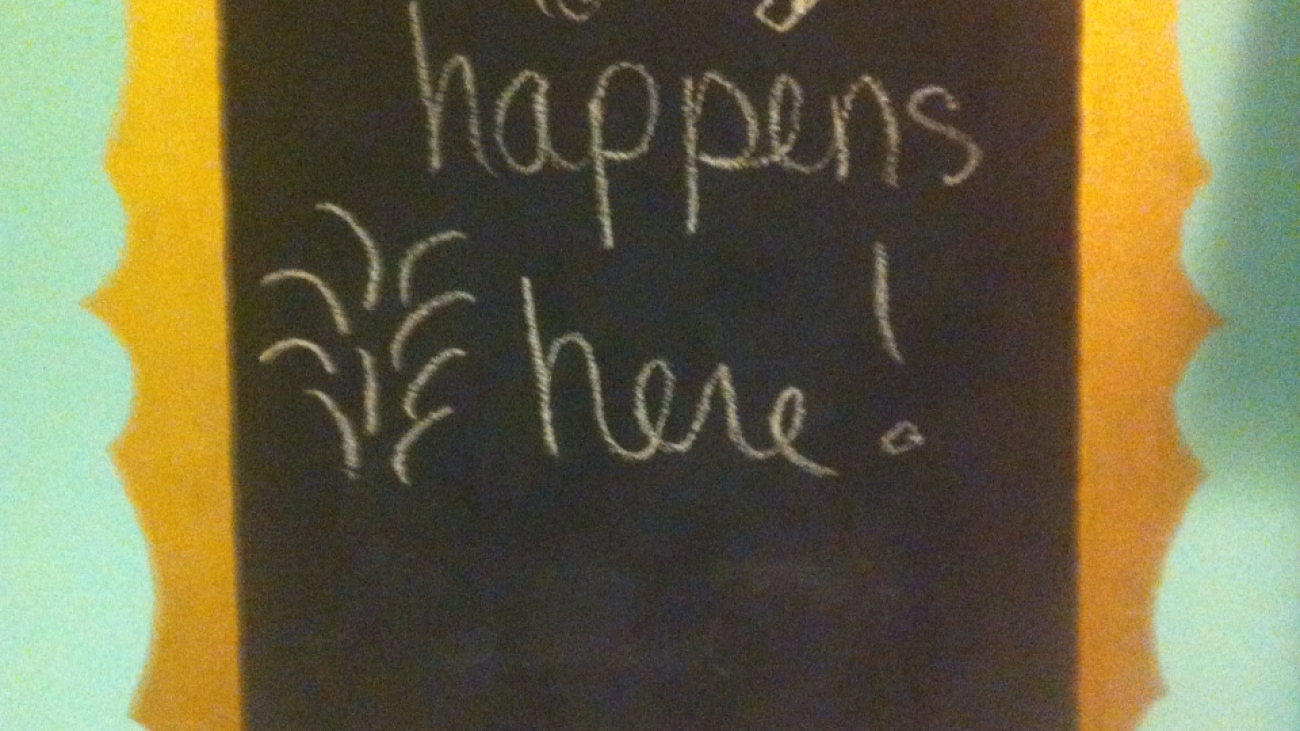 happens
here!